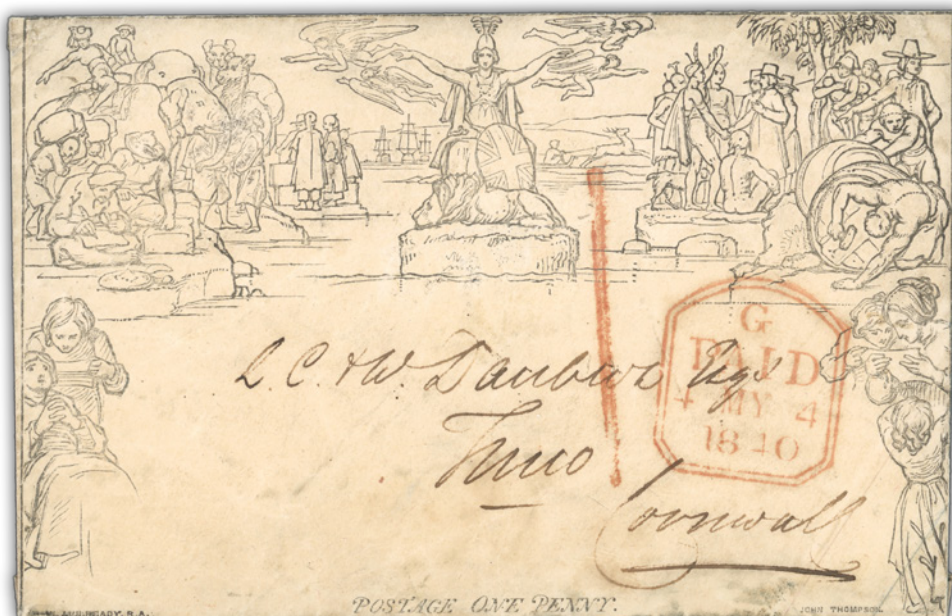 G
PAID
4 MY 4
1840
L. C. & W. Daubuz Esqs
Truro
Cornwall
W. MULREADY. R.A.
POSTAGE ONE PENNY.
JOHN THOMPSON